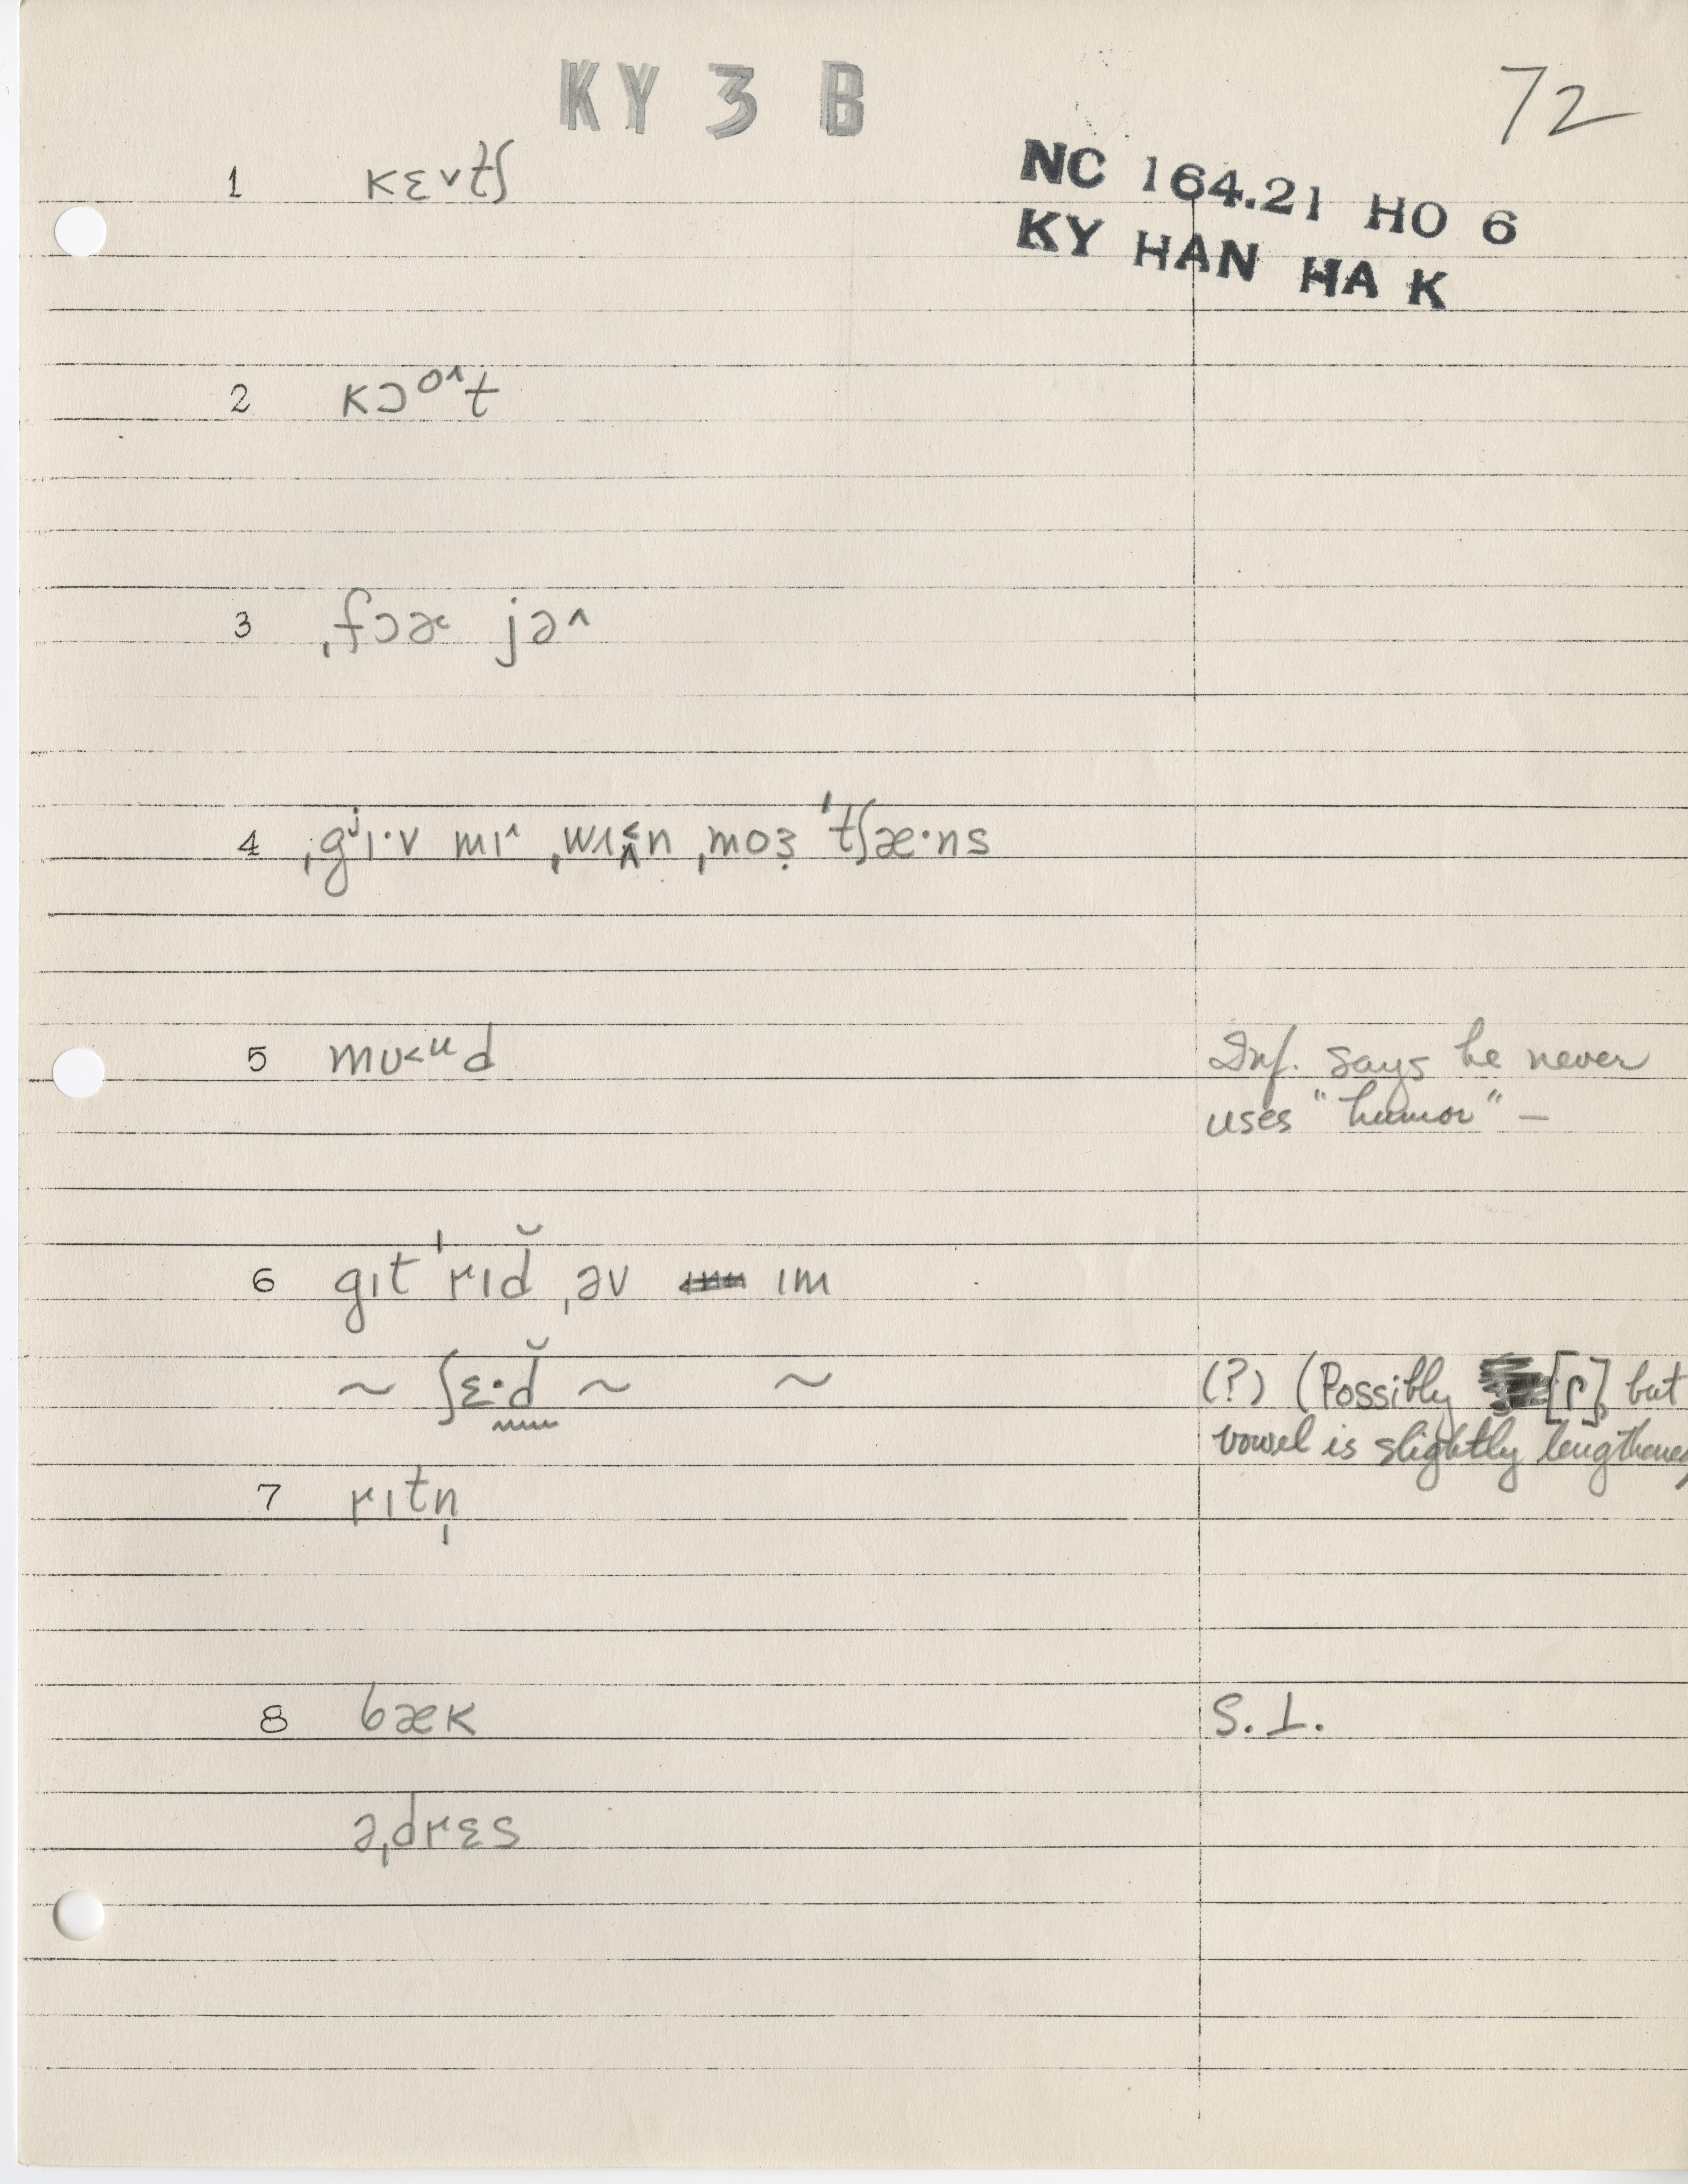 KY 3 B
72
NC 164.21 HO 6
KY HAN HA K
1 kɛ˅tʃ
2 kɔᵒ˄t
3 ˌfɔɚ jə˄
4 ˌgʲɪ·v mɪ˄ ˌwɪ˂n ˌmoɜ̣ ˈtʃæ·ns
5 mʊ˂ᵘd
Inf. says he never
uses "humor" –
6 gɪt ˈrɪd̆ ˌəv ɪm
~ ʃɛ·d̆ ~ ~
(?) (Possibly [ɾ], but
vowel is slightly lengthened
7 rɪtn̩
8 bæk
S.1.
əˌdrɛs